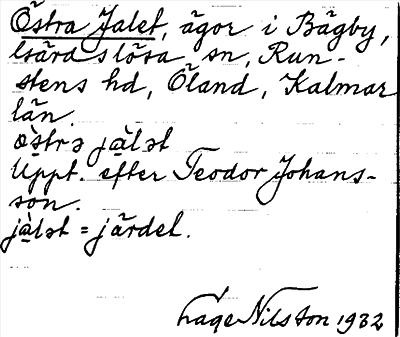 Östra Jalet, ägor i Bägby,
Gärdslösa sn, Run-
stens hd, Öland, Kalmar
län.
östrə jàlət
Uppt. efter Teodor Johans-
son.
jàlət = järdet.
Lage Nilsson 1932